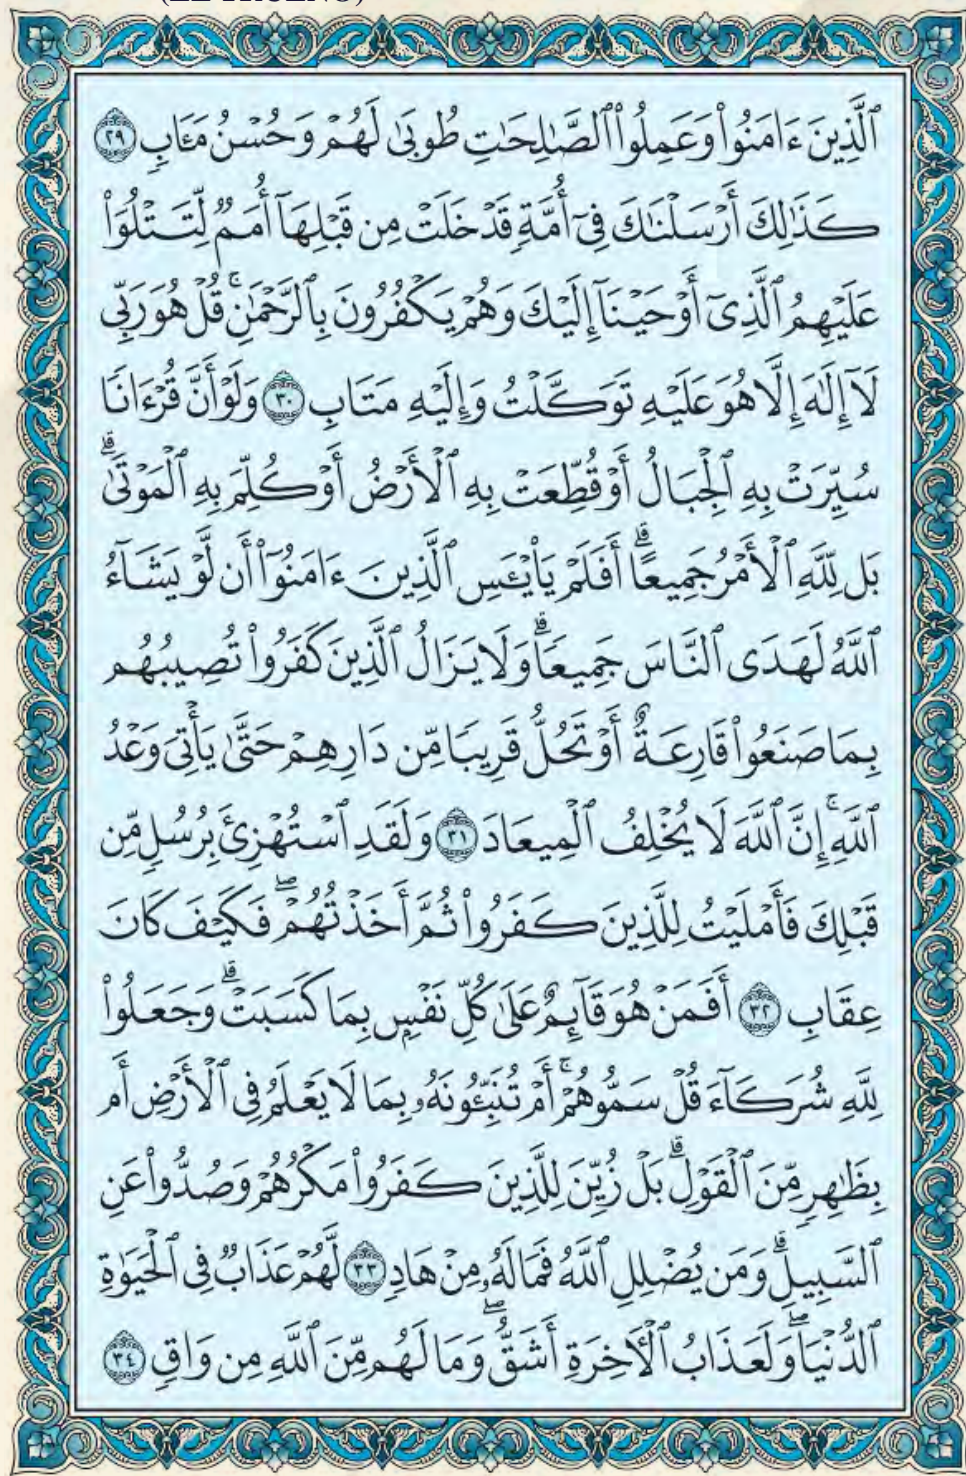 (EL TRUENO)
ٱلَّذِينَ ءَامَنُوا۟ وَعَمِلُوا۟ ٱلصَّٰلِحَٰتِ طُوبَىٰ لَهُمْ وَحُسْنُ مَـَٔابٍ ٢٩
كَذَٰلِكَ أَرْسَلْنَٰكَ فِىٓ أُمَّةٍ قَدْ خَلَتْ مِن قَبْلِهَآ أُمَمٌ لِّتَتْلُوَا۟
عَلَيْهِمُ ٱلَّذِىٓ أَوْحَيْنَآ إِلَيْكَ وَهُمْ يَكْفُرُونَ بِٱلرَّحْمَٰنِ ۚ قُلْ هُوَ رَبِّى
لَآ إِلَٰهَ إِلَّا هُوَ عَلَيْهِ تَوَكَّلْتُ وَإِلَيْهِ مَتَابِ ٣٠ وَلَوْ أَنَّ قُرْءَانًا
سُيِّرَتْ بِهِ ٱلْجِبَالُ أَوْ قُطِّعَتْ بِهِ ٱلْأَرْضُ أَوْ كُلِّمَ بِهِ ٱلْمَوْتَىٰ ۗ
بَل لِّلَّهِ ٱلْأَمْرُ جَمِيعًا ۗ أَفَلَمْ يَا۟يْـَٔسِ ٱلَّذِينَ ءَامَنُوٓا۟ أَن لَّوْ يَشَآءُ
ٱللَّهُ لَهَدَى ٱلنَّاسَ جَمِيعًا ۗ وَلَا يَزَالُ ٱلَّذِينَ كَفَرُوا۟ تُصِيبُهُم
بِمَا صَنَعُوا۟ قَارِعَةٌ أَوْ تَحُلُّ قَرِيبًا مِّن دَارِهِمْ حَتَّىٰ يَأْتِىَ وَعْدُ
ٱللَّهِ ۚ إِنَّ ٱللَّهَ لَا يُخْلِفُ ٱلْمِيعَادَ ٣١ وَلَقَدِ ٱسْتُهْزِئَ بِرُسُلٍ مِّن
قَبْلِكَ فَأَمْلَيْتُ لِلَّذِينَ كَفَرُوا۟ ثُمَّ أَخَذْتُهُمْ ۖ فَكَيْفَ كَانَ
عِقَابِ ٣٢ أَفَمَنْ هُوَ قَآئِمٌ عَلَىٰ كُلِّ نَفْسٍۭ بِمَا كَسَبَتْ ۗ وَجَعَلُوا۟
لِلَّهِ شُرَكَآءَ قُلْ سَمُّوهُمْ ۚ أَمْ تُنَبِّـُٔونَهُۥ بِمَا لَا يَعْلَمُ فِى ٱلْأَرْضِ أَم
بِظَٰهِرٍ مِّنَ ٱلْقَوْلِ ۗ بَلْ زُيِّنَ لِلَّذِينَ كَفَرُوا۟ مَكْرُهُمْ وَصُدُّوا۟ عَنِ
ٱلسَّبِيلِ ۗ وَمَن يُضْلِلِ ٱللَّهُ فَمَا لَهُۥ مِنْ هَادٍ ٣٣ لَّهُمْ عَذَابٌ فِى ٱلْحَيَوٰةِ
ٱلدُّنْيَا ۖ وَلَعَذَابُ ٱلْءَاخِرَةِ أَشَقُّ ۖ وَمَا لَهُم مِّنَ ٱللَّهِ مِن وَاقٍ ٣٤